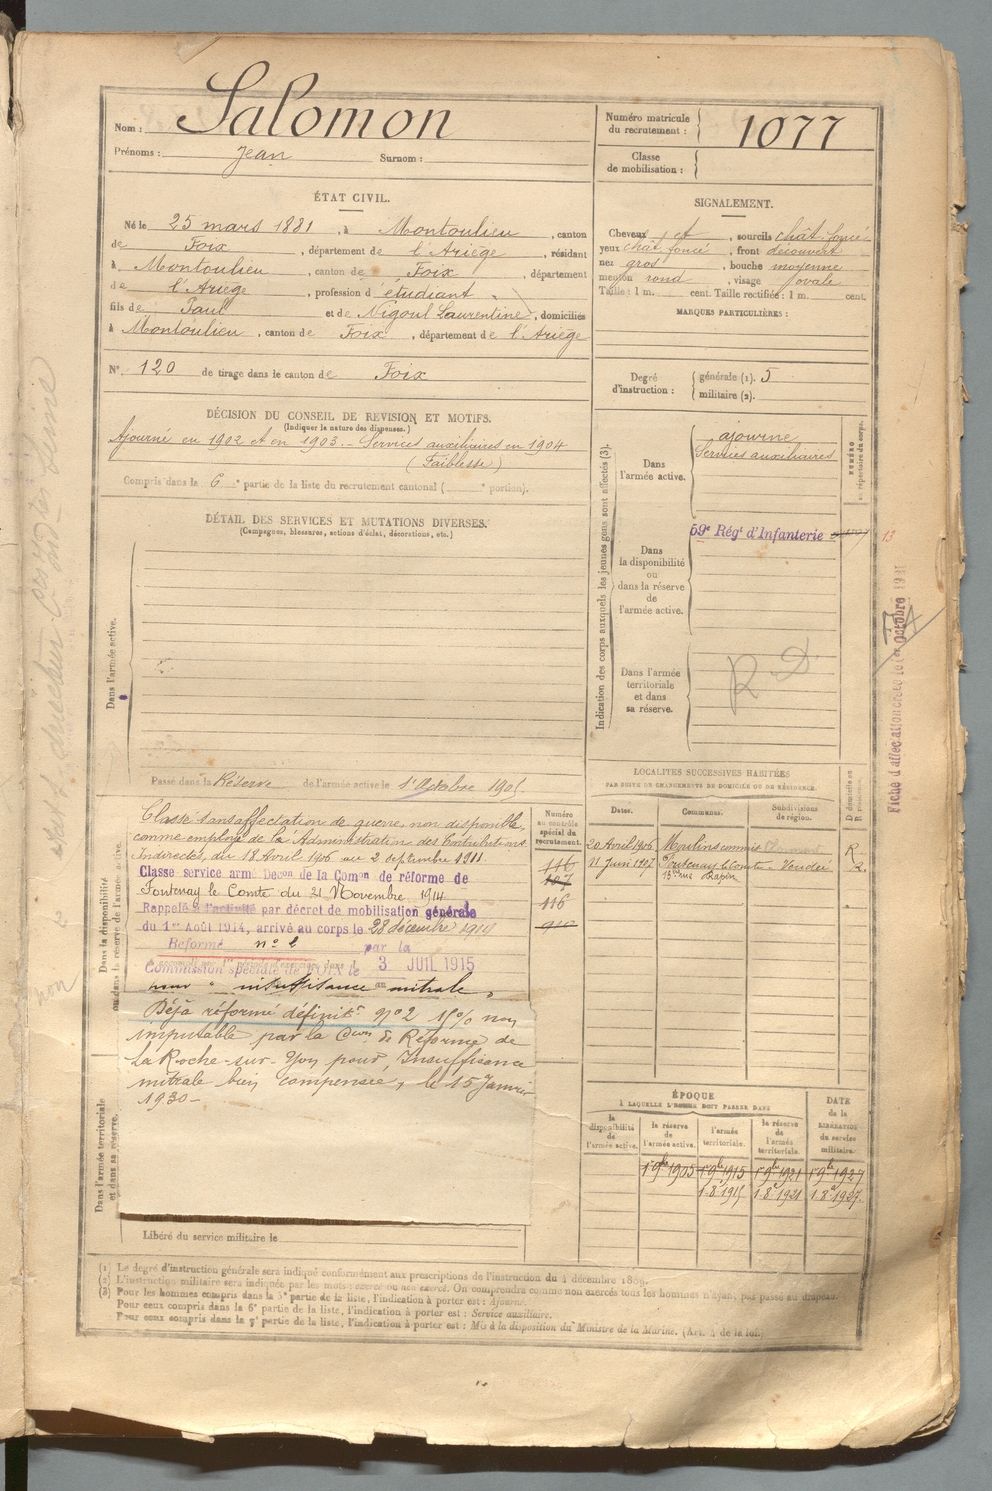 Nom : Salomon
Prénoms : Jean Surnom :
Numéro matricule du recrutement : 1077
Classe de mobilisation :
ÉTAT CIVIL.
Né le 25 mars 1881, à Montoulieu, canton
de Foix, département de l'Ariège, résidant
à Montoulieu, canton de Foix, département
de l'Ariège, profession d'étudiant
fils de Paul et de Nigoul Laurentine, domiciliés
à Montoulieu, canton de Foix, département de l'Ariège
N° 120 de tirage dans le canton de Foix
SIGNALEMENT.
Cheveux et, sourcils chât. foncé
yeux chât foncé, front découvert
nez gros, bouche moyenne
menton rond, visage ovale
Taille : 1 m. cent. Taille rectifiée : 1 m. cent.
MARQUES PARTICULIÈRES :
Degré d'instruction : générale (1). 5
militaire (2).
DÉCISION DU CONSEIL DE REVISION ET MOTIFS.
(Indiquer la nature des dispenses.)
Ajourné en 1902 et en 1903. - Services auxiliaires en 1904
(Faiblesse)
Compris dans la 6e partie de la liste du recrutement cantonal ( e portion).
DÉTAIL DES SERVICES ET MUTATIONS DIVERSES.
(Campagnes, blessures, actions d'éclat, décorations, etc.)
Dans l'armée active.
Passé dans la Réserve de l'armée active le 1er Octobre 1905
Indication des corps auxquels les jeunes gens sont affectés (3).
Dans l'armée active.
ajourné
Services auxiliaires
NUMÉRO au répertoire du corps.
Dans la disponibilité ou dans la réserve de l'armée active.
59e Régt d'Infanterie
13
Dans l'armée territoriale et dans sa réserve.
R D
Fiche d'affectation créée le 1er octobre
Dans la disponibilité ou dans la réserve de l'armée active.
Classé sans affectation de guerre, non disponible,
comme employé de l'Administration des Contributions
Indirectes, du 18 Avril 1906 au 2 septembre 1911
Classé service armé Décon de la Comon de réforme de
Fontenay le Comte du 21 Novembre 1914
Rappelé à l'activité par décret de mobilisation générale
du 1er Août 1914, arrivé au corps le 28 décembre 1914
Réformé n° 2 par la
Commission spéciale de FOIX le 3 JUIL 1915
pour " insuffisance mitrale "
Déjà réformé définitt n° 2 % non
imputable par la Cion de Réforme de
La Roche-sur-Yon pour, Insuffisance
mitrale bien compensée, le 15 Janvier
1930 -
Numéro au contrôle spécial du recrutement.
116
107
116
LOCALITÉS SUCCESSIVES HABITÉES
PAR SUITE DE CHANGEMENTS DE DOMICILE OU DE RÉSIDENCE.
Dates. Communes. Subdivisions de région. D domicile ou R résidence.
20 Avril 1906 Moulins commis R
11 Juin 1907 Fontenay le Comte Vendée R.
13 rue Rapin
Dans l'armée territoriale et dans sa réserve.
Libéré du service militaire le
ÉPOQUE
À LAQUELLE L'HOMME DOIT PASSER DANS
la disponibilité de l'armée active. la réserve de l'armée active. l'armée territoriale. la réserve de l'armée territoriale.
DATE de la LIBÉRATION du service militaire.
1er 9bre 1905 1er 9bre 1915 1er 9bre 1921 1er 9bre 1927
1.8bre 1915 1.8bre 1921 1.8bre 1927.
(1) Le degré d'instruction générale sera indiqué conformément aux prescriptions de l'instruction du 4 décembre 1889.
(2) L'instruction militaire sera indiquée par les mots : exercé ou non exercé. On comprendra comme non exercés tous les hommes n'ayant pas passé au drapeau.
(3) Pour les hommes compris dans la 5e partie de la liste, l'indication à porter est : Ajourné.
Pour ceux compris dans la 6e partie de la liste, l'indication à porter est : Service auxiliaire.
Pour ceux compris dans la 7e partie de la liste, l'indication à porter est : Mis à la disposition du Ministre de la Marine. (Art. 4 de la loi.)